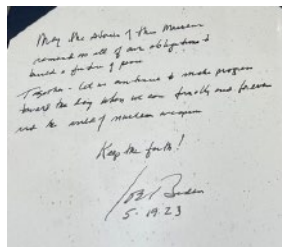 May the stories of this Museum
remind us all of our obligations to
build a future of peace.
Together - let us continue to make progress
toward the day when we can finally and forever
rid the world of nuclear weapons.
Keep the faith!
Joe Biden
5.19.23